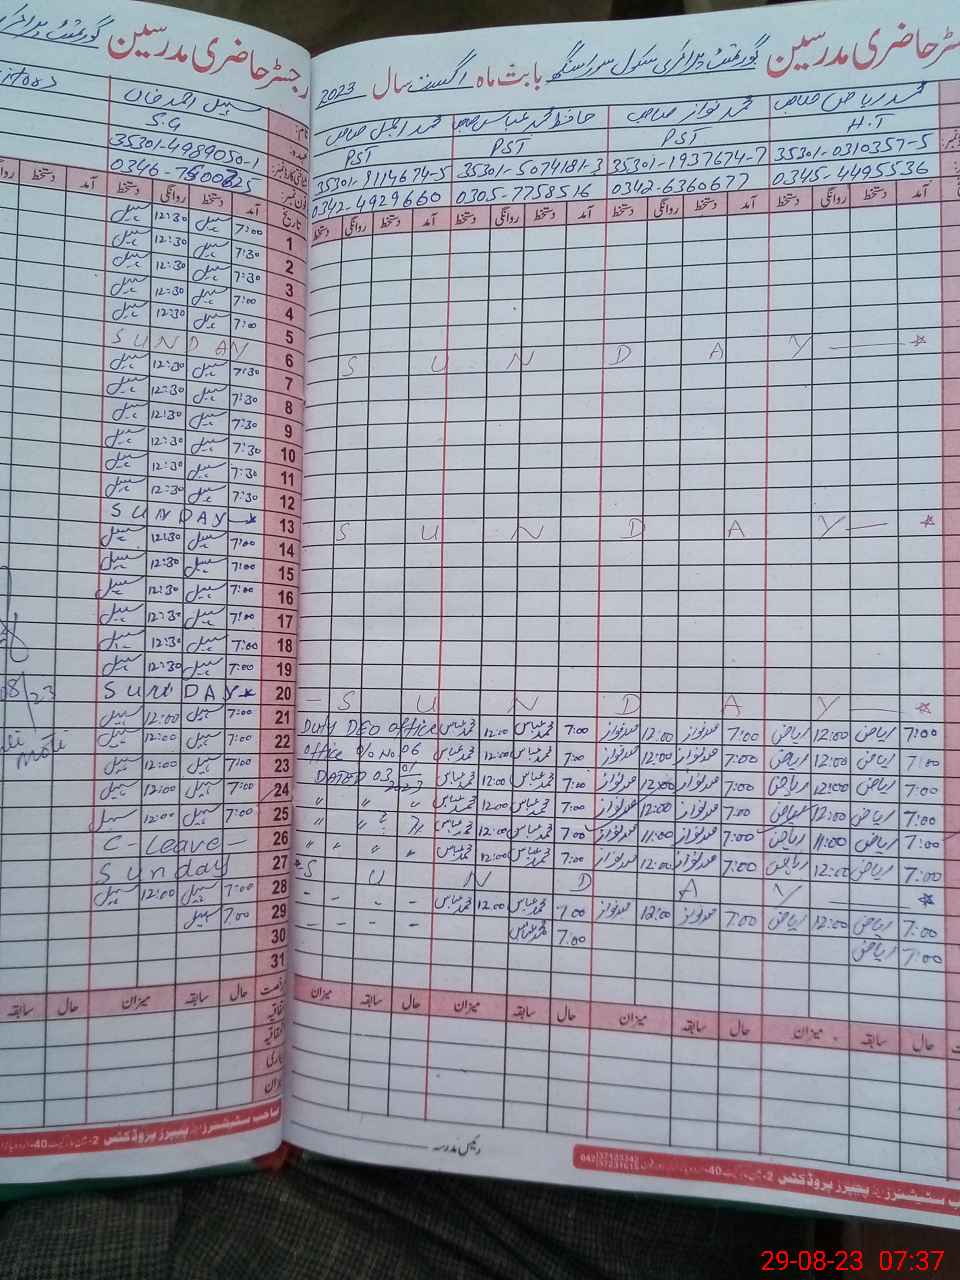 رجسٹر حاضری مدرسین گورنمنٹ پرائمری سکول بابت ماہ اگست سال 2023
محمد ریاض صاحب محمد نواز صاحب حافظ محمد عباس صاحب محمد اجمل صاحب
H.T PST PST PST
35301-0310357-5 35301-1937674-7 35301-5074181-3 35301-9114674-5
0345-4495536 0342-6360677 0305-7758516 0342-4929660
آمد دستخط روانگی دستخط آمد دستخط روانگی دستخط آمد دستخط روانگی دستخط آمد دستخط روانگی دستخط
S U N D A Y
S U N D A Y
S U N D A Y
7:00 ریاض 12:00 ریاض 7:00 محمد نواز 12:00 محمد نواز 7:00 محمد عباس 12:00 محمد عباس DUTY DEO office
7:00 ریاض 12:00 ریاض 7:00 محمد نواز 12:00 محمد نواز 7:00 محمد عباس 12:00 محمد عباس office O/O No 06
7:00 ریاض 12:00 ریاض 7:00 محمد نواز 12:00 محمد نواز 7:00 محمد عباس 12:00 محمد عباس DATED 03 01 2023
7:00 ریاض 12:00 ریاض 7:00 محمد نواز 12:00 محمد نواز 7:00 محمد عباس 12:00 محمد عباس " " "
7:00 ریاض 11:00 ریاض 7:00 محمد نواز 11:00 محمد نواز 7:00 محمد عباس 12:00 محمد عباس " "
7:00 ریاض 12:00 ریاض 7:00 محمد نواز 12:00 محمد نواز 7:00 محمد عباس 12:00 محمد عباس " " " "
S U N D A Y
7:00 ریاض 12:00 ریاض 7:00 محمد نواز 12:00 محمد نواز 7:00 محمد عباس 12:00 محمد عباس - - - -
7:00 ریاض 7:00 محمد عباس - - - -
حال سابقہ میزان حال سابقہ میزان حال سابقہ میزان حال سابقہ میزان
رئیس مدرسہ
پیپرز پروڈکٹس 2-
رجسٹر حاضری مدرسین گورنمنٹ
نام: سہیل احمد خان
عہدہ: S.G
35301-4989050-1
فون نمبر: 0346-7600625
تاریخ آمد دستخط روانگی دستخط آمد
1 7:00 سہیل 12:30 سہیل
2 7:30 سہیل 12:30 سہیل
3 7:30 سہیل 12:30 سہیل
4 7:00 سہیل 12:30 سہیل
5 7:00 سہیل 12:30 سہیل
6 SUNDAY
7 7:30 سہیل 12:30 سہیل
8 7:30 سہیل 12:30 سہیل
9 7:30 سہیل 12:30 سہیل
10 7:30 سہیل 12:30 سہیل
11 7:30 سہیل 12:30 سہیل
12 7:30 سہیل 12:30 سہیل
13 SUNDAY
14 7:00 سہیل 12:30 سہیل
15 7:00 سہیل 12:30 سہیل
16 7:00 سہیل 12:30 سہیل
17 7:00 سہیل 12:30 سہیل
18 7:00 سہیل 12:30 سہیل
19 7:00 سہیل 12:30 سہیل
20 SUNDAY
21 7:00 سہیل 12:00 سہیل
22 7:00 سہیل 12:00 سہیل
23 7:00 سہیل 12:00 سہیل
24 7:00 سہیل 12:00 سہیل
25 7:00 سہیل 12:00 سہیل
26 C-Leave-
27 Sunday
28 7:00 سہیل 12:00 سہیل
29 7:00 سہیل
30
31
حال سابقہ میزان حال سابقہ
08/23
پیپرز پروڈکٹس 2-
29-08-23 07:37